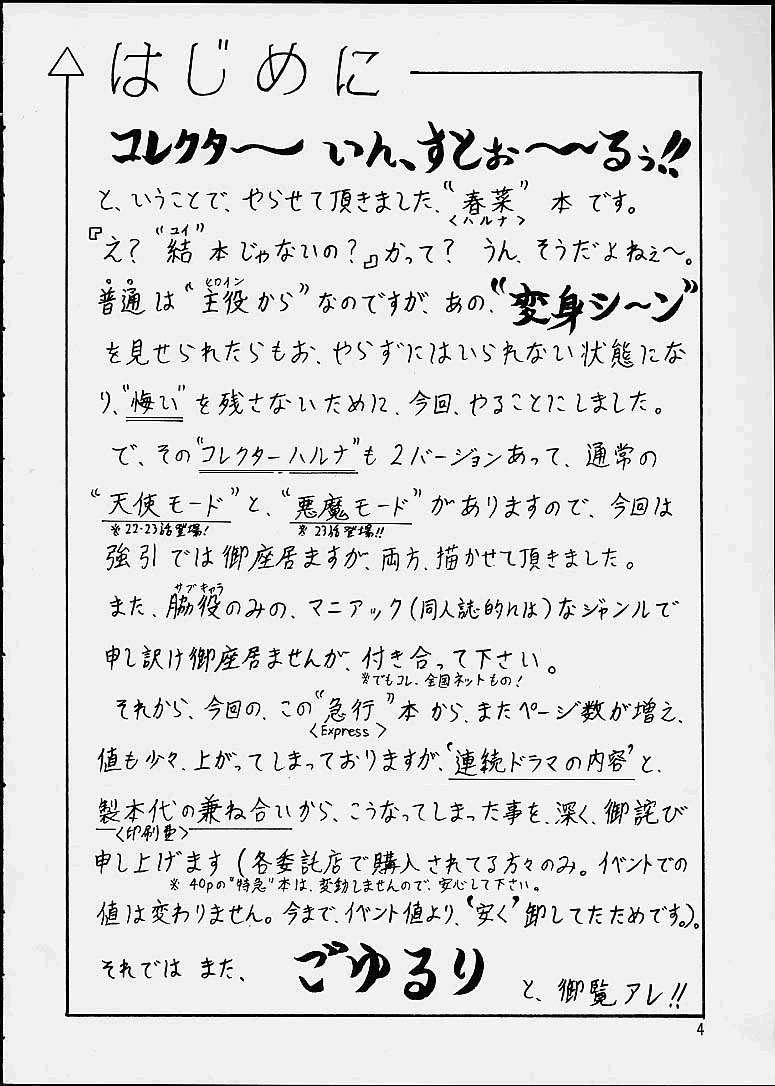 はじめに
コレクター〜 いん、すとぉ〜〜るぅ!!
と、いうことで、やらせて頂きました、“春菜” 本です。
<ハルナ>
ユイ
『え？“結”本じゃないの？』かって？ うん、そうだよねぇ〜。
ヒロイン
普通は“主役から”なのですが、あの、“変身シ〜ン”
を見せられたらもお、やらずにはいられない状態にな
り、“悔い”を残さないために、今回、やることにしました。
で、その“コレクターハルナ”も2バージョンあって、通常の
“天使モード”と、“悪魔モード”がありますので、今回は
※22・23話登場! ※23話登場!!
強引では御座居ますが、両方、描かせて頂きました。
サブキャラ
また、脇役のみの、マニアック(同人誌的には)なジャンルで
申し訳け御座居ませんが、付き合って下さい。
※でもコレ、全国ネットもの!
それから、今回の、この“急行”本から、またページ数が増え、
<Express>
値も少々、上がってしまっておりますが、‘連続ドラマの内容’と、
製本代の兼ね合いから、こうなってしまった事を、深く、御詫び
<印刷費>
申し上げます(各委託店で購入されてる方々のみ。イベントでの
※40pの“特急”本は、変動しませんので、安心して下さい。
値は変わりません。今まで、イベント値より、‘安く’卸してたためです。)。
それでは また、 ごゆるり と、御覧アレ!!
4